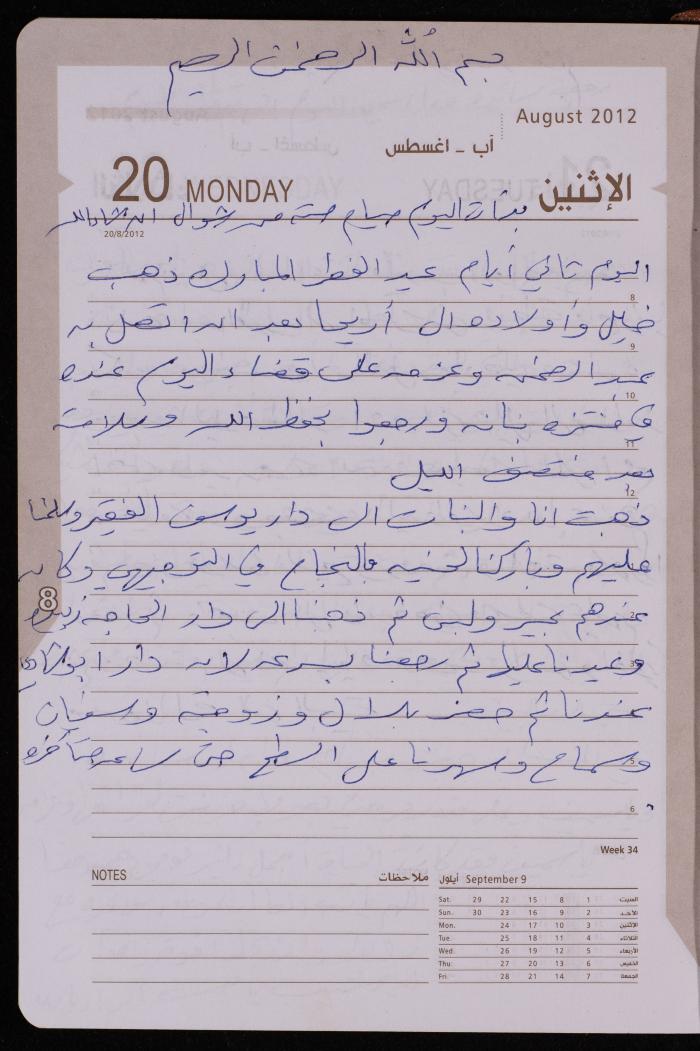 بسم الله الرحمن الرحيم
August 2012
آب - اغسطس
20 MONDAY الإثنين
20/8/2012
بدأت اليوم صيام ستة من شوال ان شاء الله
اليوم ثاني أيام عيد الفطر المبارك ذهب
8
خليل وأولاده الى أريحا بعد ان اتصل به
9
عبد الرحمن وعزمه على قضاء اليوم عنده
10
في منتزه بانه ورجعوا بحفظ الله وسلامته
11
بعد منتصف الليل
12
ذهبت انا والبنات الى دار يوسف الفقير وسلمنا
عليهم وباركنا لحنيه بالنجاح في التوجيهي وكانه
8
عندهم عبير ولبنى ثم ذهبنا الى دار الحاجه
2
وعيدنا عليها ثم رجعنا بسرعه لانه دار ابو شادي
3
عندنا ثم حضر بلال وزوجته وسفيان
وسماح وسهرنا على السطح حتى ساعه متأخره
5
6
Week 34
NOTES ملاحظات
September 9 أيلول
Sat. 29 22 15 8 1 السبت
Sun. 30 23 16 9 2 الأحد
Mon. 24 17 10 3 الإثنين
Tue. 25 18 11 4 الثلاثاء
Wed. 26 19 12 5 الأربعاء
Thu. 27 20 13 6 الخميس
Fri. 28 21 14 7 الجمعة